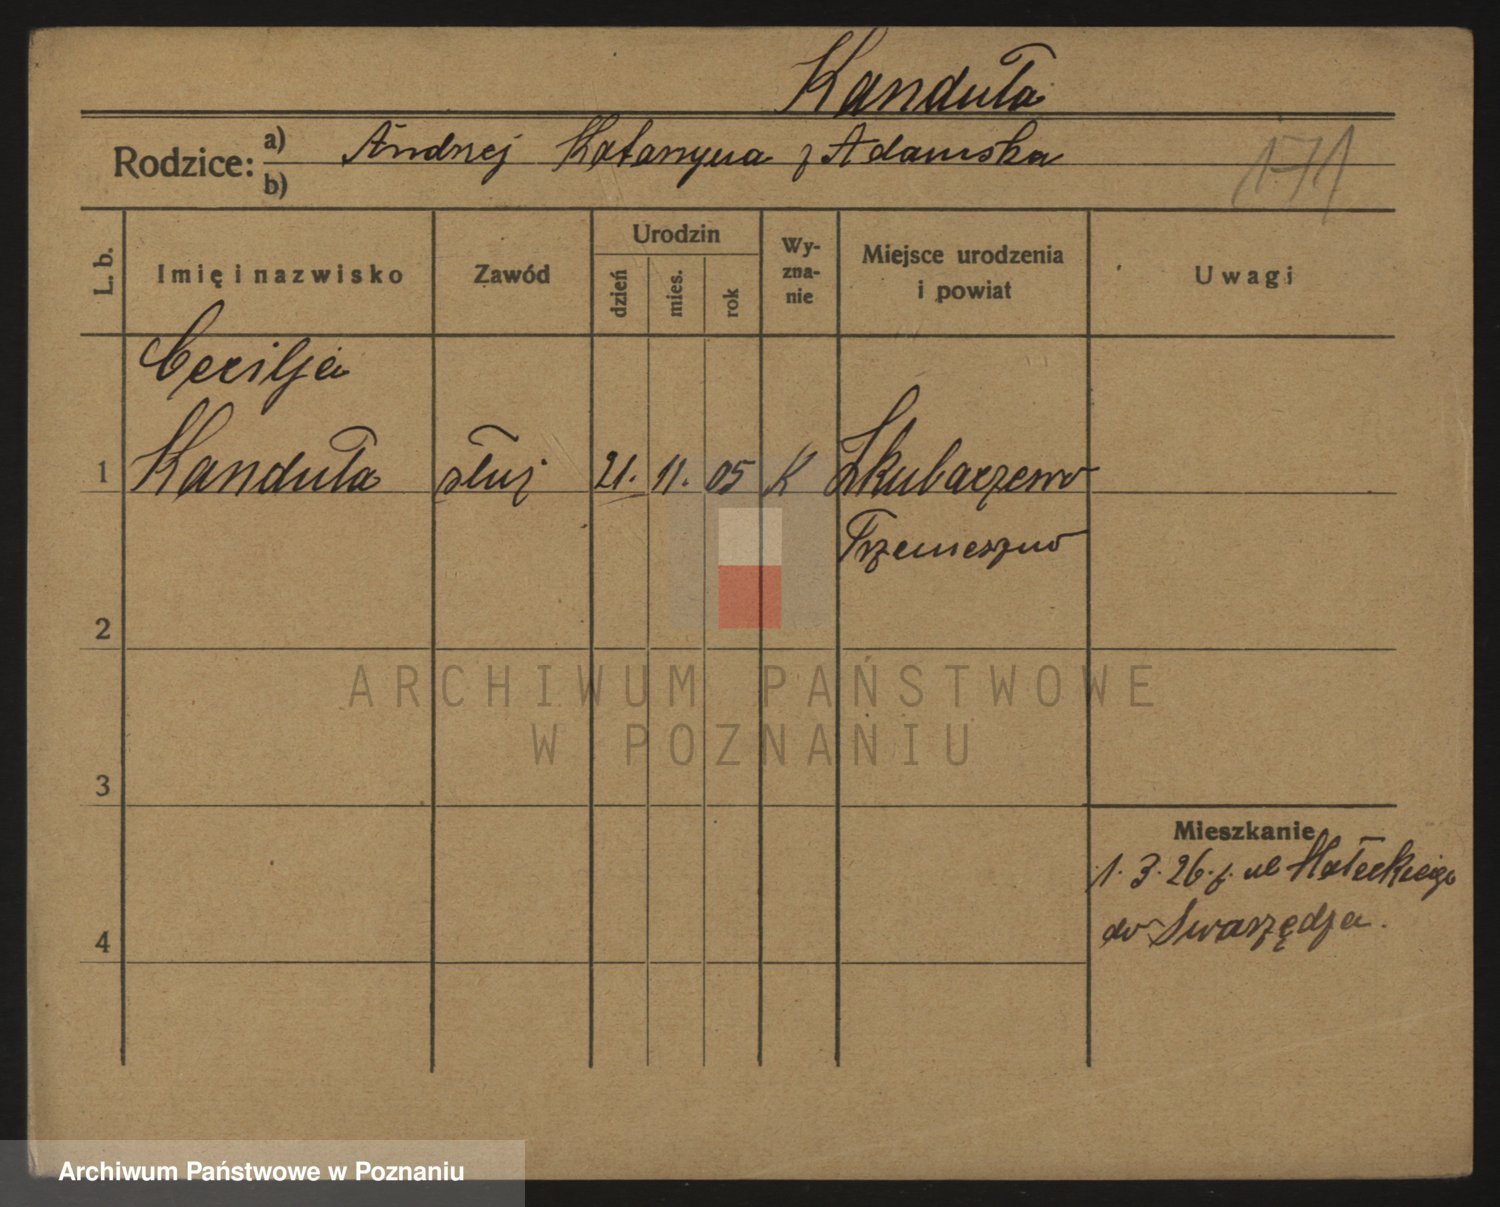 Kanduła
Rodzice: a) Andrzej Katarzyna z Adamska
b)
171
L. b.
Imię i nazwisko
Zawód
Urodzin
dzień
mies.
rok
Wy-
zna-
nie
Miejsce urodzenia
i powiat
Uwagi
Cecilja
1 Kanduła służ 21. 11. 05 K Skubarzewo
Trzemeszno
2
3
4
Mieszkanie
1. 3. 26. z. ul Małeckiego
do Swarzędza.
ARCHIWUM PAŃSTWOWE
W POZNANIU
Archiwum Państwowe w Poznaniu